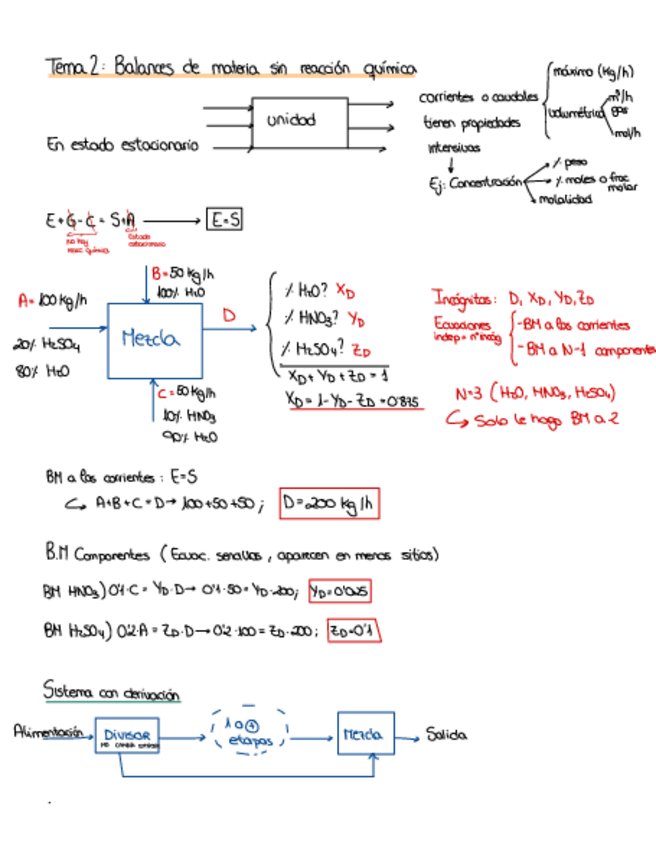 Tema 2: Balances de materia sin reacción química
unidad
En estado estacionario
corrientes o caudales
tienen propiedades
intensivas
máximo (kg/h)
volumétrico
m³/h
gas
mol/h
Ej: Concentración
% peso
% moles o frac
molar
molalidad
E + G - C = S + A → E = S
no hay
reac química
Estado
estacionario
A = 100 kg/h
20% H₂SO₄
80% H₂O
B = 50 kg/h
100% H₂O
Mezcla
C = 50 kg/h
10% HNO₃
90% H₂O
D
% H₂O? X_D
% HNO₃? Y_D
% H₂SO₄? Z_D
X_D + Y_D + Z_D = 1
X_D = 1 - Y_D - Z_D = 0'875
Incógnitas: D, X_D, Y_D, Z_D
Ecuaciones
indep = nº incóg
- BM a las corrientes
- BM a N-1 componentes
N=3 (H₂O, HNO₃, H₂SO₄)
↪ Solo le hago BM a 2
BM a las corrientes: E=S
↪ A+B+C = D → 100+50+50; D = 200 kg/h
B.M Componentes (Ecuac. sencillas, aparecen en menos sitios)
BM HNO₃) 0'1·C = Y_D·D → 0'1·50 = Y_D·200; Y_D = 0'025
BM H₂SO₄) 0'2·A = Z_D·D → 0'2·100 = Z_D·200; Z_D = 0'1
Sistema con derivación
Alimentación
DIVISOR
NO CAMBIA
1 o ⊕
etapas
Mezcla
Salida